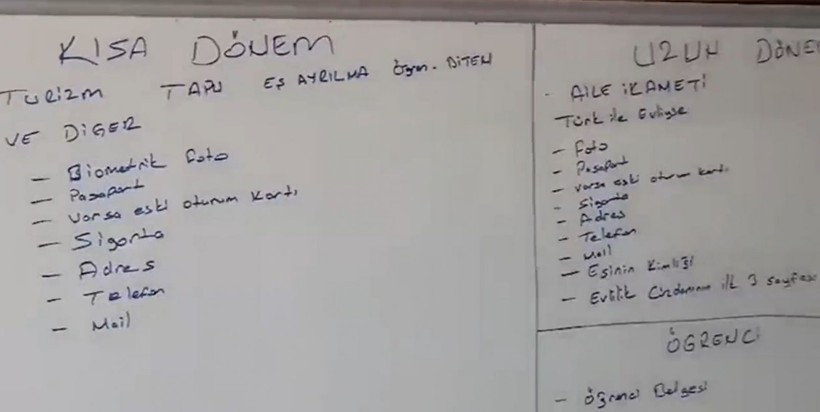 KISA DÖNEM
TURİZM TAPU EŞ AYRILMA Öğren. BİTEN
VE DİGER
- Biometrik foto
- Pasaport
- Varsa eski oturum kartı
- Sigorta
- Adres
- Telefon
- Mail
UZUN DÖNE
. AİLE İKAMETİ
Türk ile Evliyse
- Foto
- Pasaport
- Varsa eski oturum kartı
- Sigorta
- Adres
- Telefon
- Mail
- Eşinin Kimliği
- Evlilik Cüzdanının ilk 3 sayfası
ÖĞRENCİ
- Öğrenci Belgesi